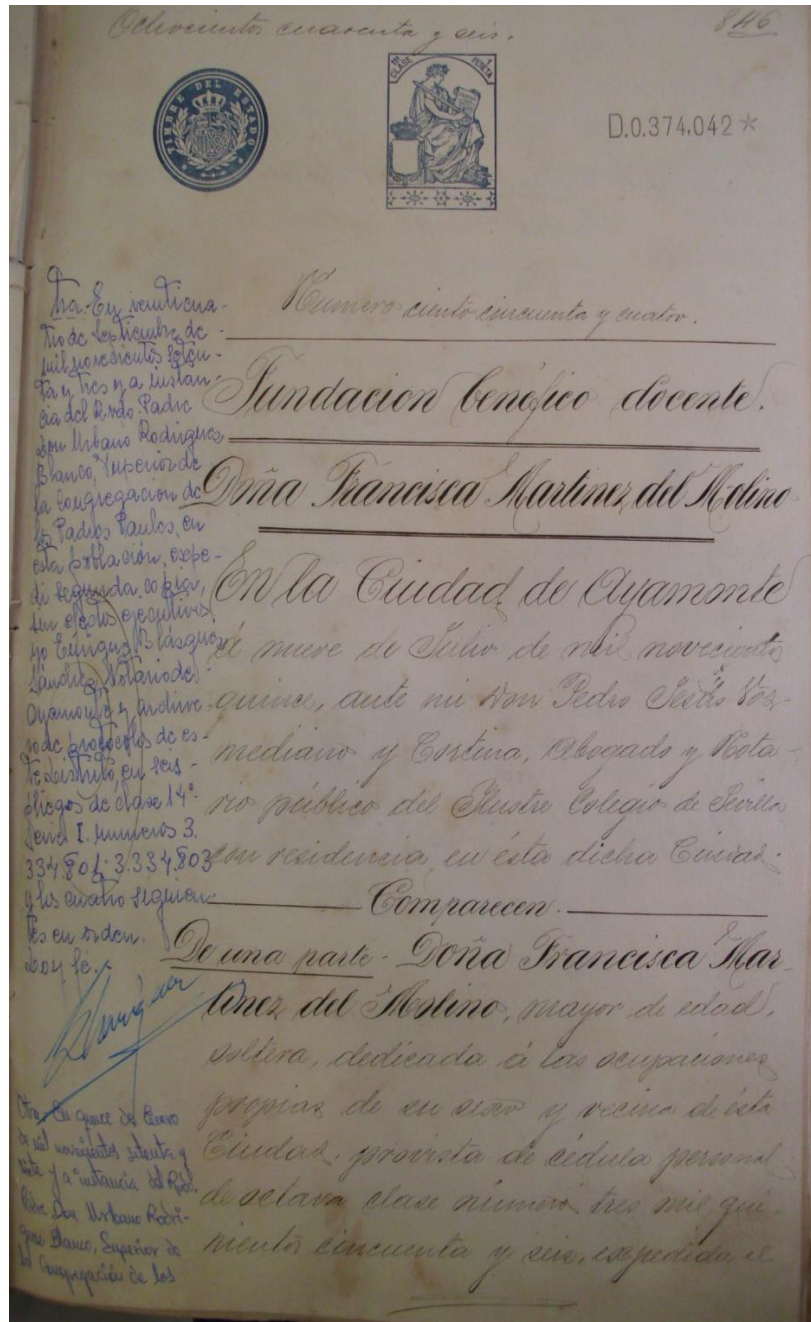 Ochocientos cuarenta y seis.
846
TIMBRE DEL ESTADO
11ª CLASE
1 PESETA
D.0.374.042*
Numero ciento cincuenta y cuatro.
Fundacion benéfico docente.
Doña Francisca Martinez del Molino
En la Ciudad de Ayamonte
á nueve de Julio de mil novecientos
quince, ante mi Don Pedro Jesús Voz-
mediano y Cortina, Abogado y Nota-
rio público del Ilustre Colegio de Sevilla
con residencia en ésta dicha Ciudad.
Comparecen.
De una parte - Doña Francisca Mar-
tinez del Molino, mayor de edad,
soltera, dedicada á las ocupaciones
propias de su sexo y vecina de ésta
Ciudad, provista de cédula personal
de octava clase número tres mil qui-
nientos cincuenta y seis, expedida el
En veinticua-
tro de Septiembre de
mil novecientos seten-
ta y tres y a instan-
cia del Rvdo Padre
Don Urbano Rodriguez
Blanco, Superior de
la Congregacion de
los Padres Paules, en
esta población, expe-
dí segunda copia,
sin efectos ejecutivos,
yo Blázquez
Sánchez, Notario de
Ayamonte y archive-
ro de protocolos de es-
te Distrito, en seis
pliegos de clase 14ª
serie I. numeros 3.
334.801; 3.334.803
y los cuatro siguien-
tes en orden.
Doy fe.
Otra- En quince de Enero
de mil novecientos setenta y
siete y a instancia del Rvdo.
Padre Don Urbano Rodrí-
guez Blanco, Superior de
la Congregación de los